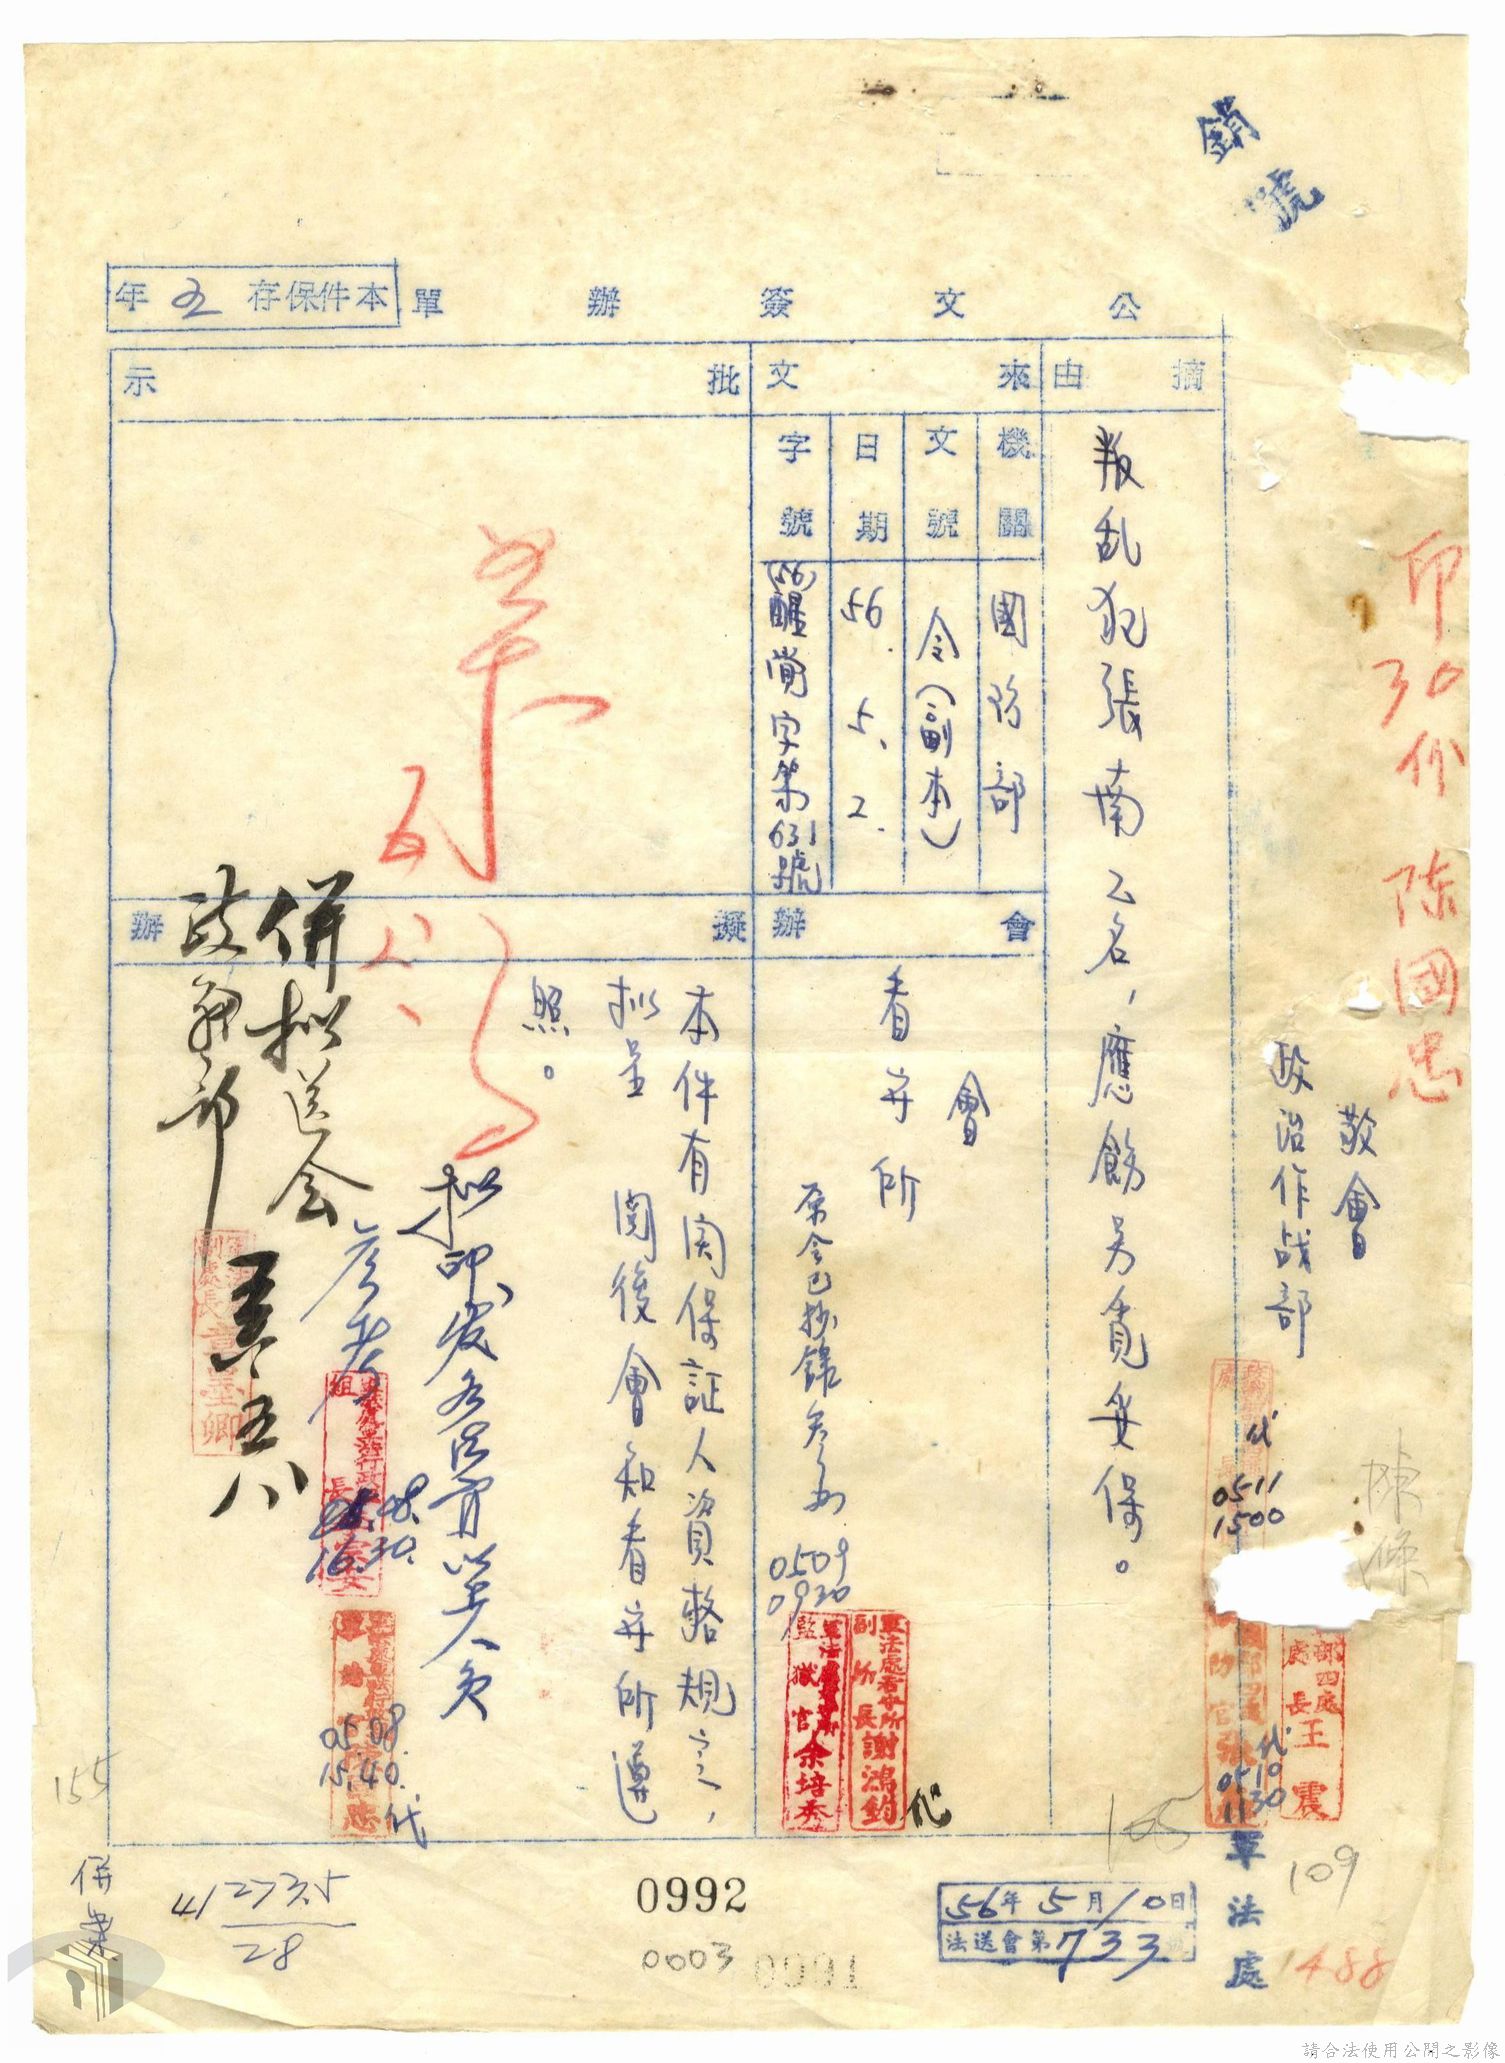 銷號
公文簽辦單
本件保存五年
摘由
叛乱犯張南乙名，應飭另覓妥保。
來文
機關
國防部
文號
令（副本）
日期
56.5.2.
字號
(56)醒覺字第631號
批示
會辦
會
看守所
原令已抄錄
0509
0930
軍法處看守所
副所長謝鴻鈞
代
監獄官余培
擬辦
本件有関保証人資格規定，
拟呈 閱後會知看守所遵
照。
拟印发各
0508.
15.40.
代
16.30.
併拟送会
政戰部
五八
副處長
敬會
政治作战部
代
0511
1500
代
0510
1130
部四處
處長王震
印30份 陈國忠
軍法處
56年5月10日
法送會第733號
0992
0003
0991
105
109
1488
155
併案
41273.5
28
請合法使用公開之影像